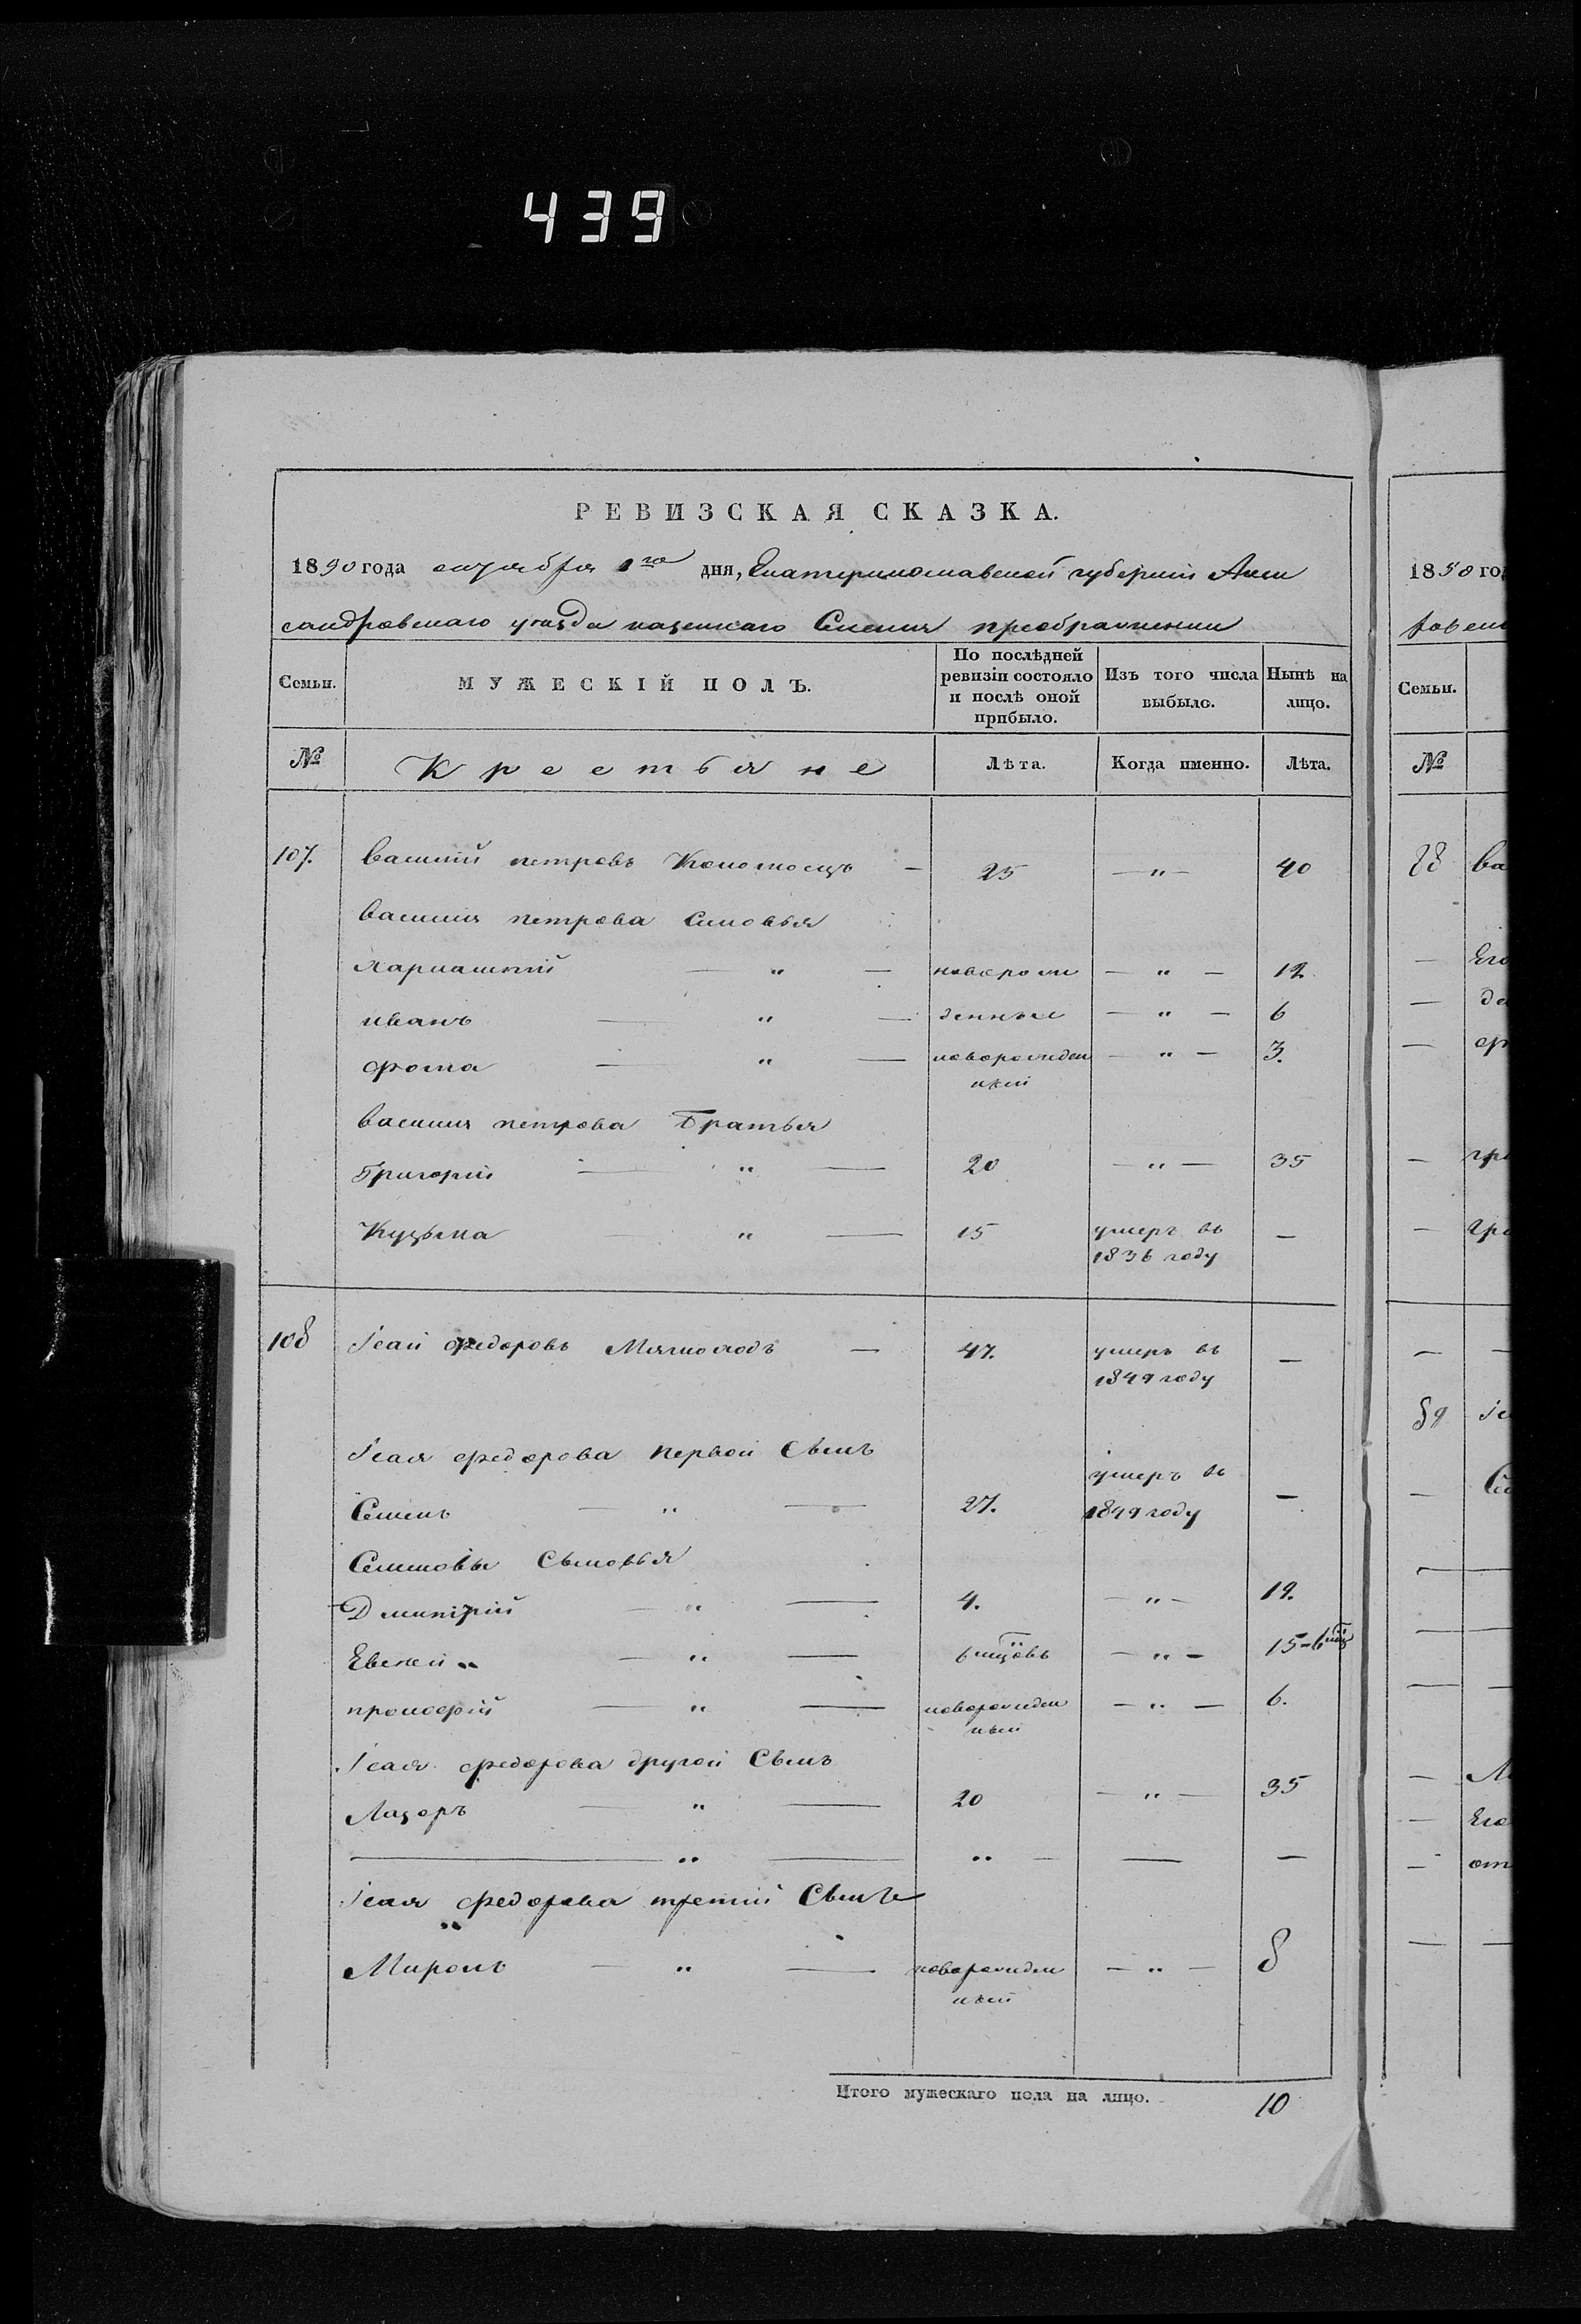 439
РЕВИЗСКАЯ СКАЗКА.
1850 года октября 1го дня, Екатеринославской губернiи Алек
сандровскаго уѣзда казеннаго Селенія преображенки
Семьи. МУЖЕСКІЙ ПОЛЪ. По послѣдней ревизіи состояло и послѣ оной прибыло. Изъ того числа выбыло. Нынѣ на лицо.
№ Крестьяне Лѣта. Когда именно. Лѣта.
107. Василій петровъ Коломоецъ — 25 —"— 40
Василія петрова Сыновья
Харлампій — " — новорож — " — 12
иванъ — " — денные — " — 6
фома — " — новорожден — " — 3.
ный
Василія петрова Братья
Григорій — " — 20 — " — 35
Кузьма — " — 15 умеръ въ —
1836 году
108 Iсай федоровъ — 47. умеръ въ —
1849 году
Iсая федорова первой Сынъ
умеръ въ
Семенъ — " — 27. 1849 году —
Семеновы Сыновья
Дмитрій — " — 4. — " — 19.
Евсей " — " — 6 мцовъ — " — 15-6 мц
прокофій — " — новорожден — " — 6.
ный
Iсая федорова другой Сынъ
Лазорь — " — 20 — " — 35
— " — " — — —
Iсая федорова третій Сынъ
"
Миронъ — " — новорожден — " — 8
ный
Итого мужескаго пола на лицо. 10
1850 го
Семьи.
№
88 Ва
— Его
— до
—
— гри
— гри
— —
89 Iс
—
— —
— —
— —
— М
— Его
— от
— —